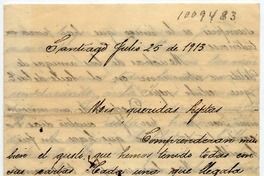 1009483
Santiago Julio 25 de 1913
Mis queridas hijitas
Comprenderan mui
bien el gusto, que hemos tenido todas con
sus cartitas. Cada una que llegaba